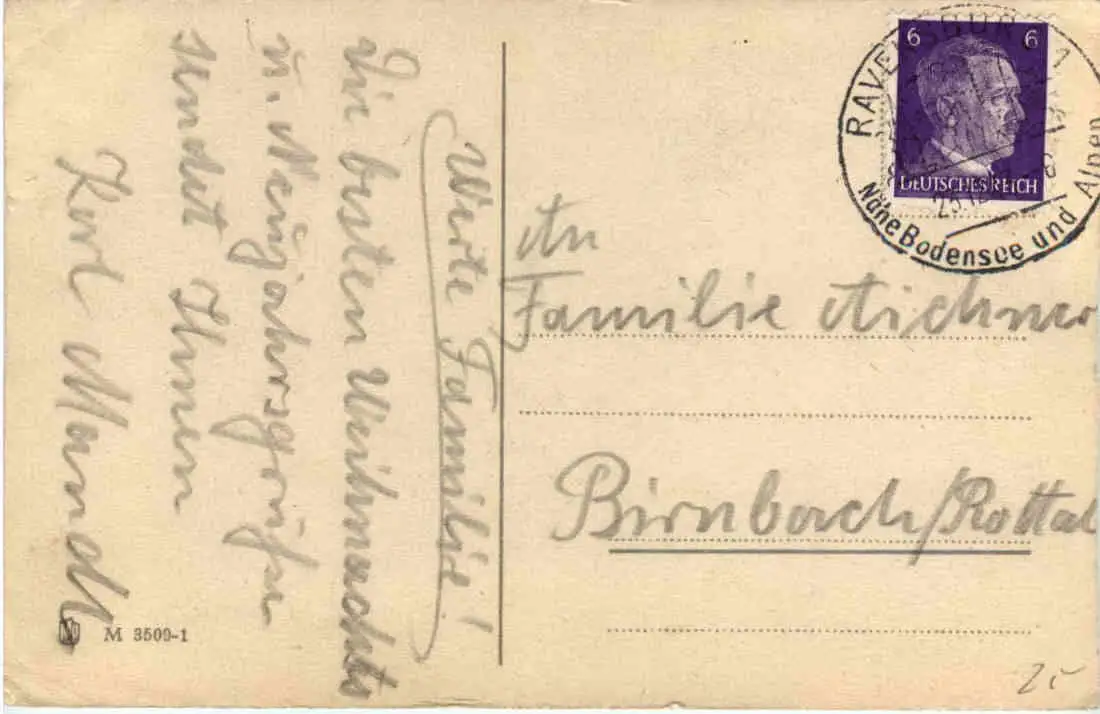 Werte Familie!
Die besten Weihnachts
u. Neujahrsgrüße
sendet Ihnen
Karl Mandl
M 3509-1
6 6
DEUTSCHES REICH
RAVENSBURG 1
Nähe Bodensee und Alpen
An
Familie Aichner
Birnbach/Rottal
25